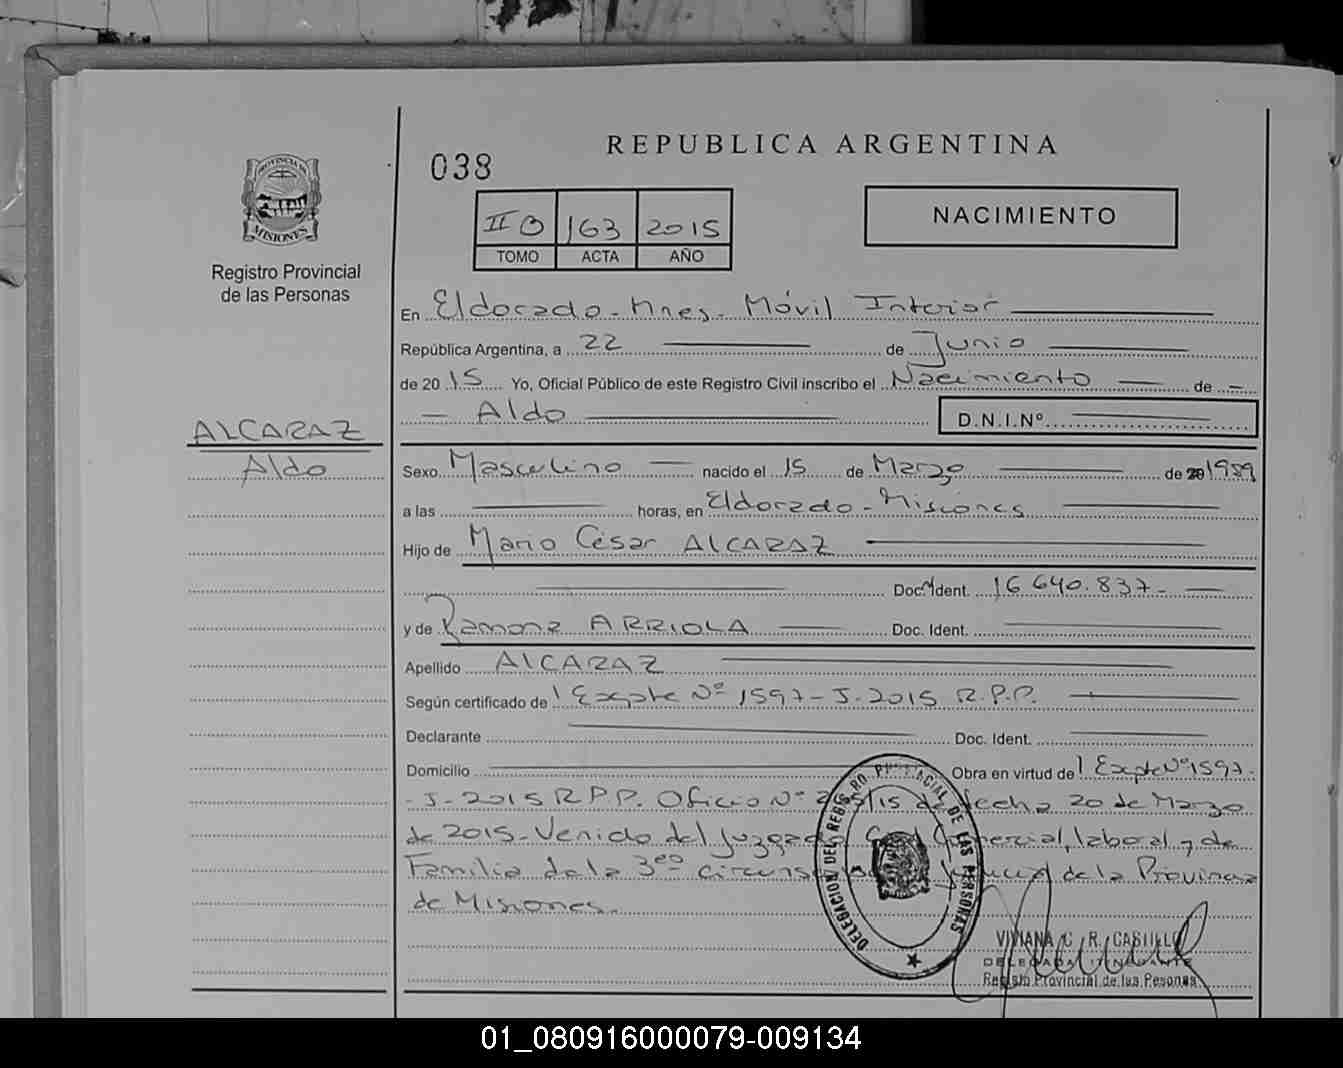 REPUBLICA ARGENTINA
038
PROVINCIA DE
MISIONES
Registro Provincial
de las Personas
II B 163 2015
TOMO ACTA AÑO
NACIMIENTO
En Eldorado - Mnes - Móvil Interior
República Argentina, a 22 de Junio
de 2015 Yo, Oficial Público de este Registro Civil inscribo el Nacimiento de
Aldo
D.N.I.Nº
ALCARAZ
Aldo
Sexo Masculino nacido el 15 de Marzo de 1989
a las horas, en Eldorado - Misiones
Hijo de Mario César ALCARAZ
Doc. Ident. 16.640.837-
y de Ramona ARRIOLA Doc. Ident.
Apellido ALCARAZ
Según certificado de Expte Nº 1597-J-2015 R.P.P.
Declarante Doc. Ident.
Domicilio Obra en virtud de Expte Nº 1597-
-J-2015 R.P.P. Oficio Nº /15 de fecha 20 de Marzo
de 2015- Venido del Juzgado Comercial, laboral y de
Familia de la 3era de la Provincia
de Misiones.
DELEGACION DEL REGISTRO PROVINCIAL DE LAS PERSONAS
VIVIANA C. R. CASTILLO
DELEGADA ITINERANTE
Registro Provincial de las Pesonas
01_080916000079-009134